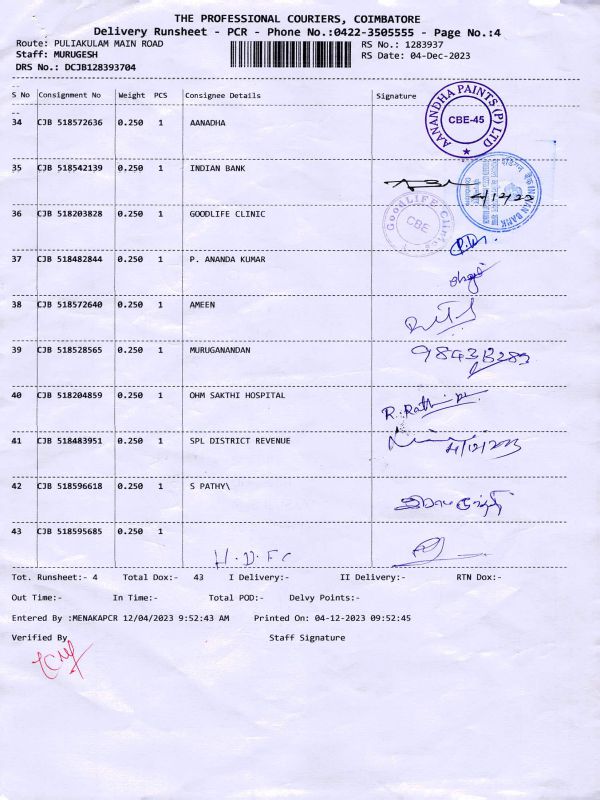 THE PROFESSIONAL COURIERS, COIMBATORE
Delivery Runsheet - PCR - Phone No.:0422-3505555 - Page No.:4
Route: PULIAKULAM MAIN ROAD RS No.: 1283937
Staff: MURUGESH RS Date: 04-Dec-2023
DRS No.: DCJB128393704
S No Consignment No Weight PCS Consignee Details Signature
34 CJB 518572636 0.250 1 AANADHA
AANANDHA PAINTS (P) LTD
CBE-45
35 CJB 518542139 0.250 1 INDIAN BANK
INDIAN BANK
4/12/23
36 CJB 518203828 0.250 1 GOODLIFE CLINIC
GOODLIFE Clinic
CBE
37 CJB 518482844 0.250 1 P. ANANDA KUMAR
38 CJB 518572640 0.250 1 AMEEN
39 CJB 518528565 0.250 1 MURUGANANDAN
40 CJB 518204859 0.250 1 OHM SAKTHI HOSPITAL
41 CJB 518483951 0.250 1 SPL DISTRICT REVENUE
4/12/2023
42 CJB 518596618 0.250 1 S PATHY\
43 CJB 518595685 0.250 1
H.D.F.C
Tot. Runsheet:- 4 Total Dox:- 43 I Delivery:- II Delivery:- RTN Dox:-
Out Time:- In Time:- Total POD:- Delvy Points:-
Entered By :MENAKAPCR 12/04/2023 9:52:43 AM Printed On: 04-12-2023 09:52:45
Verified By Staff Signature